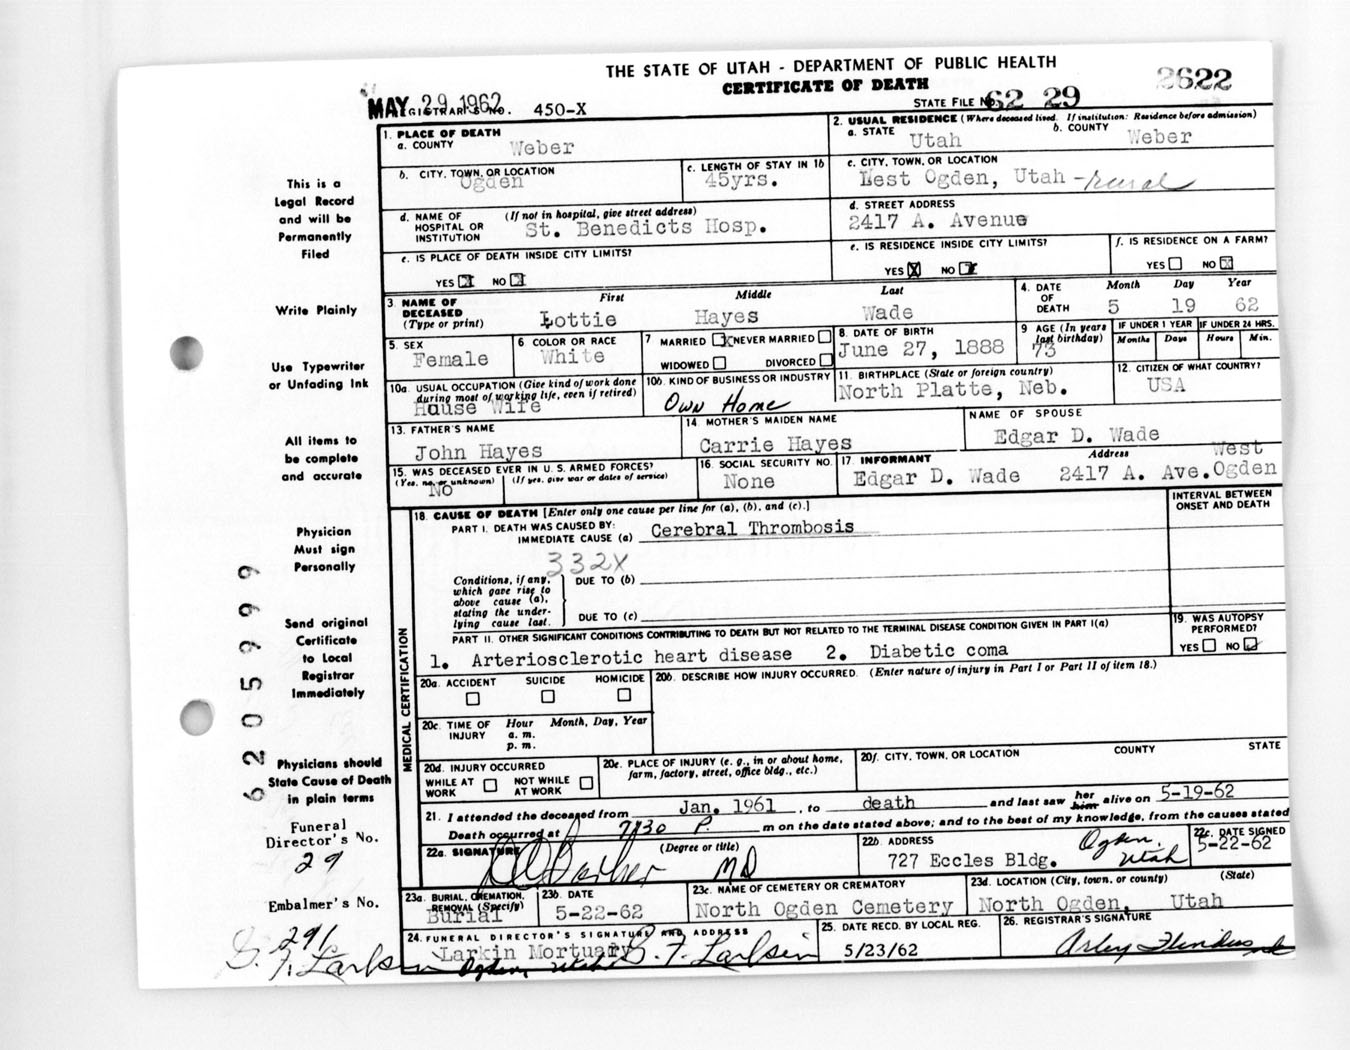 THE STATE OF UTAH - DEPARTMENT OF PUBLIC HEALTH
CERTIFICATE OF DEATH
2622
MAY 29 1962
REGISTRAR'S NO. 450-X
STATE FILE NO. 62 29
1. PLACE OF DEATH
a. COUNTY Weber
2. USUAL RESIDENCE (Where deceased lived. If institution: Residence before admission)
a. STATE Utah b. COUNTY Weber
b. CITY, TOWN, OR LOCATION Ogden
c. LENGTH OF STAY IN 1b 45yrs.
c. CITY, TOWN, OR LOCATION West Ogden, Utah - rural
d. NAME OF HOSPITAL OR INSTITUTION (If not in hospital, give street address) St. Benedicts Hosp.
d. STREET ADDRESS 2417 A. Avenue
e. IS PLACE OF DEATH INSIDE CITY LIMITS?
YES NO
e. IS RESIDENCE INSIDE CITY LIMITS?
YES NO
f. IS RESIDENCE ON A FARM?
YES NO
3. NAME OF DECEASED (Type or print)
First Middle Last
Lottie Hayes Wade
4. DATE OF DEATH Month Day Year
5 19 62
5. SEX Female
6 COLOR OR RACE White
7 MARRIED NEVER MARRIED
WIDOWED DIVORCED
8. DATE OF BIRTH June 27, 1888
9 AGE (In years last birthday) 73
IF UNDER 1 YEAR Months Days
IF UNDER 24 HRS. Hours Min.
10a. USUAL OCCUPATION (Give kind of work done during most of working life, even if retired) House Wife
10b. KIND OF BUSINESS OR INDUSTRY Own Home
11. BIRTHPLACE (State or foreign country) North Platte, Neb.
12. CITIZEN OF WHAT COUNTRY? USA
13. FATHER'S NAME John Hayes
14. MOTHER'S MAIDEN NAME Carrie Hayes
NAME OF SPOUSE Edgar D. Wade
15. WAS DECEASED EVER IN U. S. ARMED FORCES?
(Yes, no, or unknown) (If yes, give war or dates of service)
No
16. SOCIAL SECURITY NO. None
17. INFORMANT Address
Edgar D. Wade 2417 A. Ave. West Ogden
MEDICAL CERTIFICATION
18. CAUSE OF DEATH [Enter only one cause per line for (a), (b), and (c).]
INTERVAL BETWEEN ONSET AND DEATH
PART I. DEATH WAS CAUSED BY:
IMMEDIATE CAUSE (a) Cerebral Thrombosis
332X
Conditions, if any, which gave rise to above cause (a), stating the underlying cause last.
DUE TO (b)
DUE TO (c)
PART II. OTHER SIGNIFICANT CONDITIONS CONTRIBUTING TO DEATH BUT NOT RELATED TO THE TERMINAL DISEASE CONDITION GIVEN IN PART I(a)
1. Arteriosclerotic heart disease 2. Diabetic coma
19. WAS AUTOPSY PERFORMED?
YES NO
20a. ACCIDENT SUICIDE HOMICIDE
20b. DESCRIBE HOW INJURY OCCURRED. (Enter nature of injury in Part I or Part II of item 18.)
20c. TIME OF INJURY Hour Month, Day, Year
a. m.
p. m.
20d. INJURY OCCURRED
WHILE AT WORK NOT WHILE AT WORK
20e. PLACE OF INJURY (e. g., in or about home, farm, factory, street, office bldg., etc.)
20f. CITY, TOWN, OR LOCATION COUNTY STATE
21. I attended the deceased from Jan. 1961, to death and last saw her him alive on 5-19-62
Death occurred at 7:30 P. m on the date stated above; and to the best of my knowledge, from the causes stated
22a. SIGNATURE (Degree or title)
MD
22b. ADDRESS 727 Eccles Bldg. Ogden, Utah
22c. DATE SIGNED 5-22-62
23a. BURIAL, CREMATION, REMOVAL (Specify) Burial
23b. DATE 5-22-62
23c. NAME OF CEMETERY OR CREMATORY North Ogden Cemetery
23d. LOCATION (City, town, or county) (State)
North Ogden, Utah
24. FUNERAL DIRECTOR'S SIGNATURE AND ADDRESS
Larkin Mortuary G. F. Larkin
Ogden, Utah
25. DATE RECD. BY LOCAL REG. 5/23/62
26. REGISTRAR'S SIGNATURE
This is a
Legal Record
and will be
Permanently
Filed
Write Plainly
Use Typewriter
or Unfading Ink
All items to
be complete
and accurate
Physician
Must sign
Personally
Send original
Certificate
to Local
Registrar
Immediately
Physicians should
State Cause of Death
in plain terms
Funeral
Director's No.
29
Embalmer's No.
291
G. F. Larkin
62205999